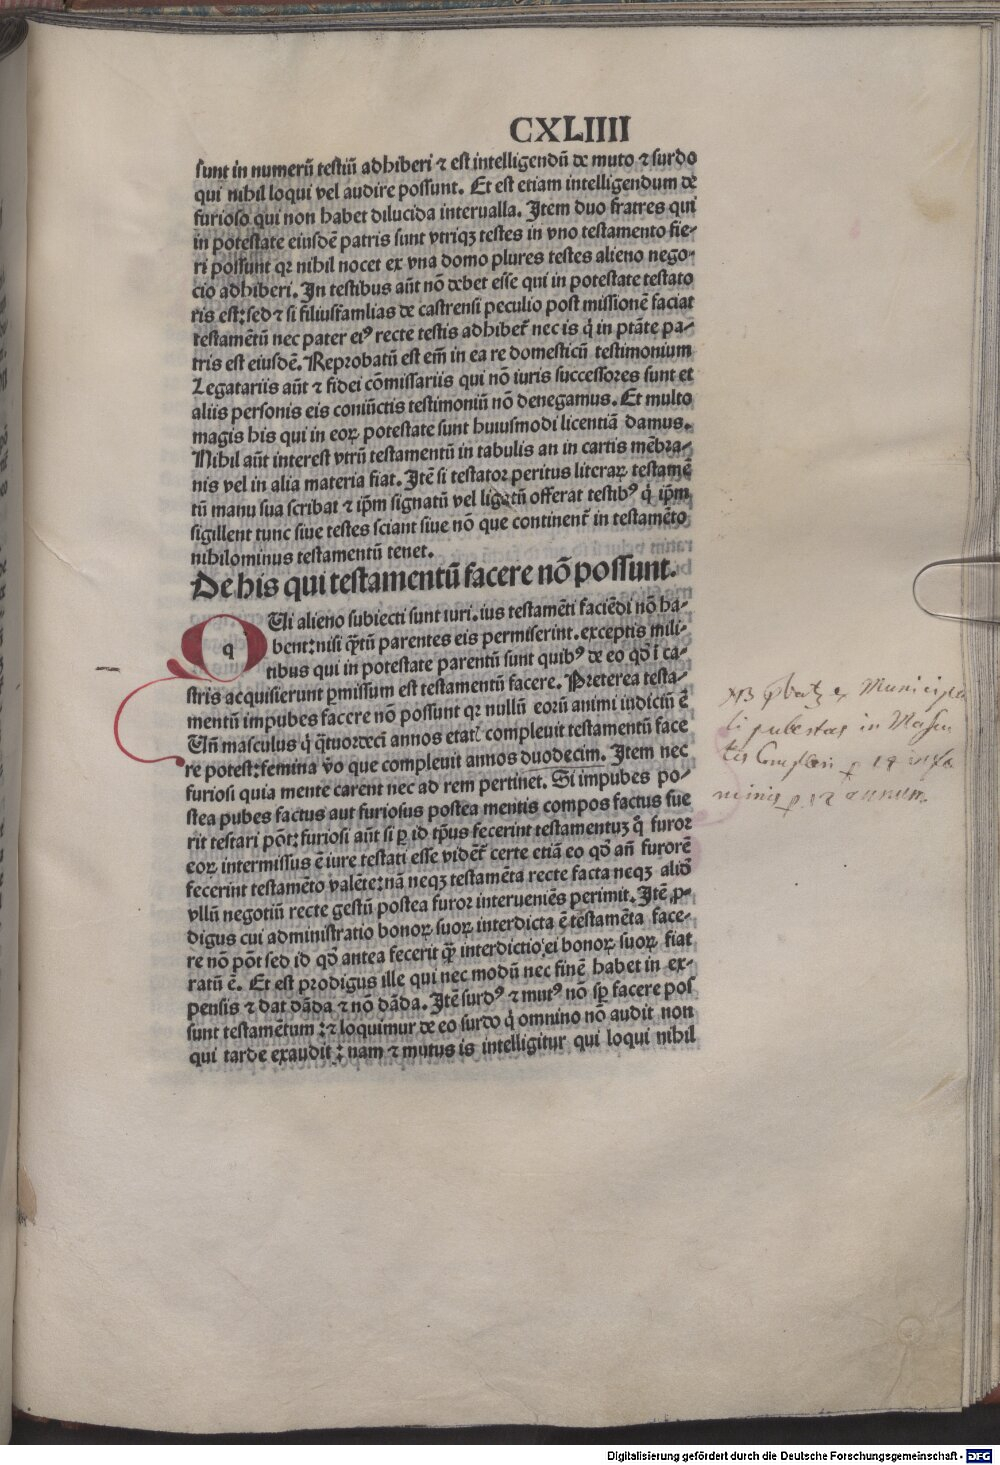 CXLIIII
sunt in numerū testiū adhiberi ⁊ est intelligendū de muto ⁊ surdo
qui nihil loqui vel audire possunt. Et est etiam intelligendum de
furioso qui non habet dilucida interualla. Item duo fratres qui
in potestate eiusdē patris sunt vtriqꝫ testes in vno testamento fie⸗
ri possunt qꝛ nihil nocet ex vna domo plures testes alieno nego⸗
cio adhiberi. In testibus aūt nō debet esse qui in potestate testato
ris est: sed ⁊ si filiusfamlias de castrensi peculio post missionē faciat
testamētū nec pater eiꝰ recte testis adhibet᷑ nec is q̇ in ptāte pa⸗
tris est eiusdē. Reprobatū est em̄ in ea re domesticū testimonium
Legatariis aūt ⁊ fidei cōmissariis qui nō iuris successores sunt et
aliis personis eis coniūctis testimoniū nō denegamus. Et multo
magis his qui in eoꝝ potestate sunt huiusmodi licentiā damus.
Nihil aūt interest vtrū testamentū in tabulis an in cartis mēbra⸗
nis vel in alia materia fiat. Itē si testator peritus literaꝝ testamē
tū manu sua scribat ⁊ ip̄m signatū vel ligatū offerat testibꝰ q̇ ip̄m
sigillent tunc siue testes sciant siue nō que continent᷑ in testamēto
nihilominus testamentū tenet.
De his qui testamentū facere nō possunt.
q Ui alieno subiecti sunt iuri. ius testamēti faciēdi nō ha⸗
bent: nisi qͣtū parentes eis permiserint. exceptis mili⸗
tibus qui in potestate parentū sunt quibꝰ de eo qd̄ i ca⸗
stris acquisierunt ꝑmissum est testamentū facere. Preterea testa⸗
mentū impubes facere nō possunt qꝛ nullū eorū animi iudiciū ē
Uñ masculus q̇ qͣtuordeci annos etatꝭ compleuit testamentū face
re potest: femina v̄o que compleuit annos duodecim. Item nec
furiosi quia mente carent nec ad rem pertinet. Si impubes po⸗
stea pubes factus aut furiosus postea mentis compos factus fue
rit testari pōt: furiosi aūt si ꝑ id tp̄us fecerint testamentuꝫ q̇ furor
eoꝝ intermissus ē iure testati esse vidēt᷑ certe etiā eo qd̄ añ furorē
fecerint testamēto valēte: nā neqꝫ testamēta recte facta neqꝫ aliō
vllū negotiū recte gestū postea furor interueniēs perimit. Itē ꝓ⸗
digus cui administratio bonoꝝ suoꝝ interdicta ē testamēta face⸗
re nō pōt sed id qd̄ antea fecerit qͣꝫ interdictio ei bonoꝝ suoꝝ fiat
ratū ē. Et est prodigus ille qui nec modū nec finē habet in ex⸗
pensis ⁊ dat dāda ⁊ nō dāda. Itē surdꝰ ⁊ mutꝰ nō sp̄ facere pos
sunt testamētum: ⁊ loquimur de eo surdo q̇ omnino nō audit non
qui tarde exaudit: nam ⁊ mutus is intelligitur qui loqui nihil
Municipa
li pubertas in Mascu
lis
minis p 12 annum.
Digitalisierung gefördert durch die Deutsche Forschungsgemeinschaft - DFG